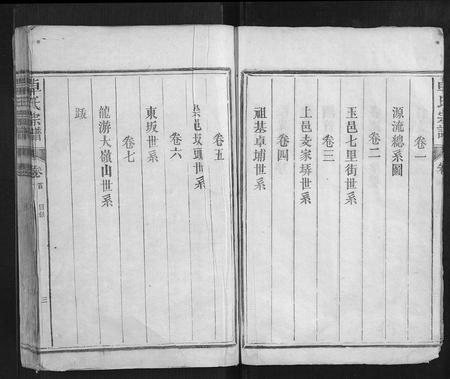 卷一
源流總系圖
卷二
玉邑七里街世系
卷三
上邑麦家塝世系
卷四
祖基卓埔世系
卷五
坂頭世系
卷六
東坂世系
卷七
龍游大嶺山世系
跋
卓氏宗譜
卷首
目錄
三